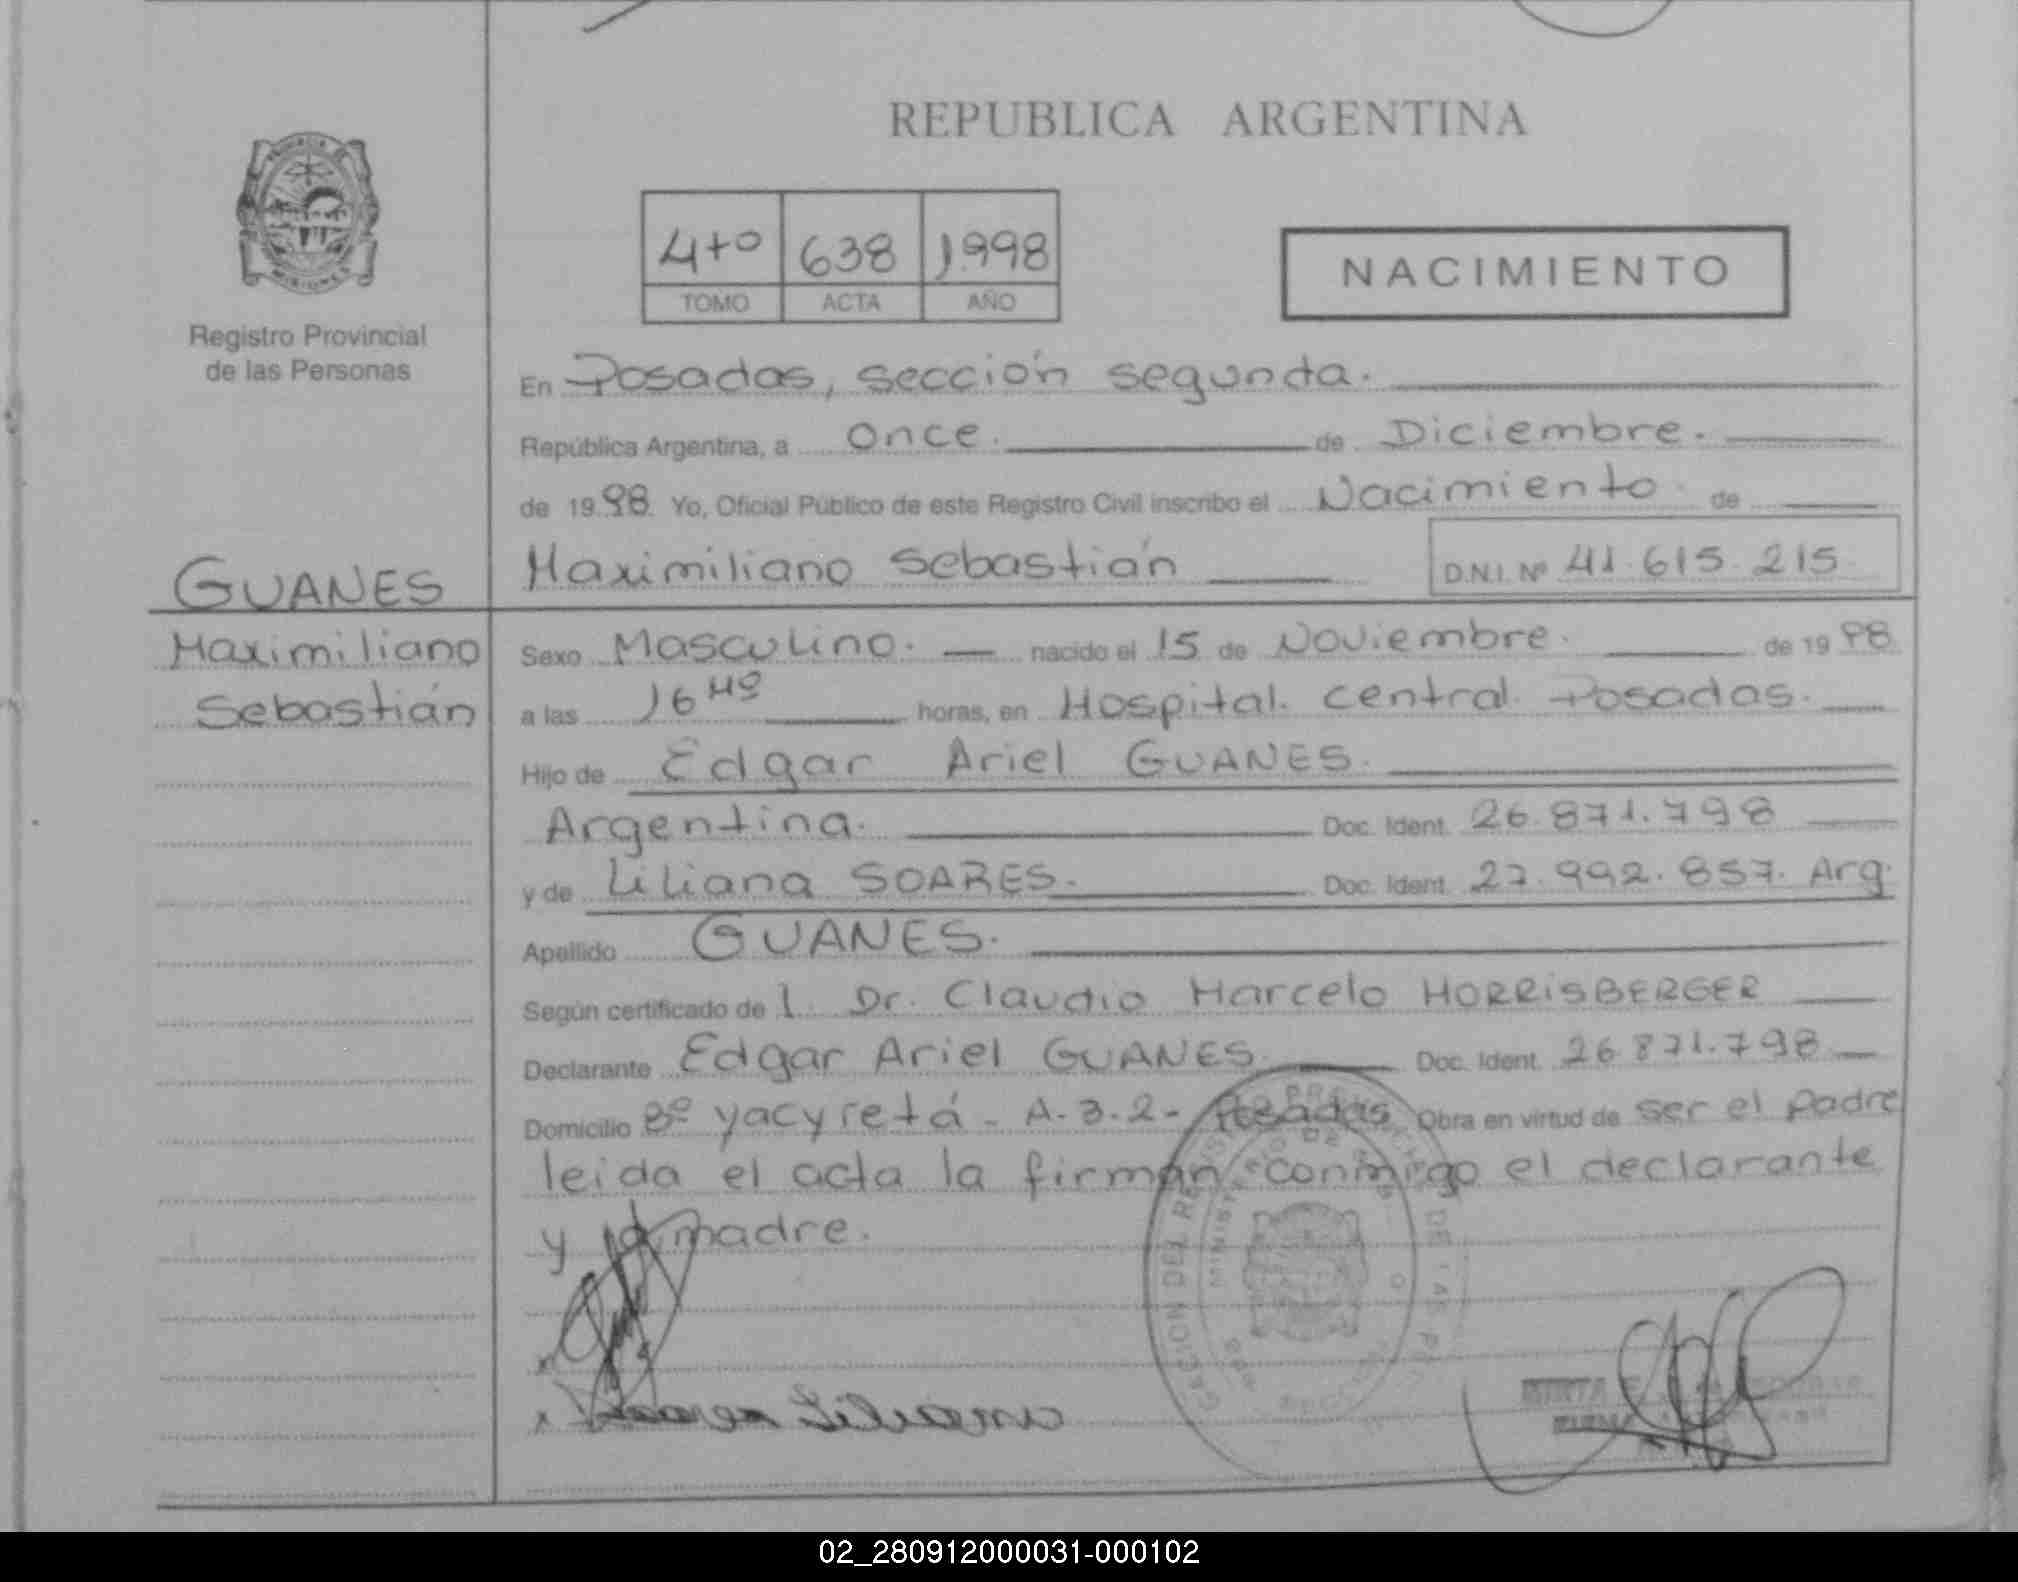 REPUBLICA ARGENTINA
4to 638 1998
TOMO ACTA AÑO
NACIMIENTO
Registro Provincial
de las Personas
En Posadas, sección segunda.
República Argentina, a once. de Diciembre.
de 1998 Yo, Oficial Público de este Registro Civil inscribo el Nacimiento de
Maximiliano Sebastián D.N.I. Nº 41.615.215
GUANES
Maximiliano
Sebastián
Sexo Masculino. nacido el 15 de Noviembre. de 1998
a las 16 horas, en Hospital Central Posadas.
Hijo de Edgar Ariel GUANES.
Argentina. Doc. Ident. 26.871.798
y de Liliana SOARES. Doc. Ident. 27.992.857. Arg.
Apellido GUANES.
Según certificado de l Dr. Claudio Marcelo HORRISBERGER
Declarante Edgar Ariel GUANES Doc. Ident. 26.871.798
Domicilio Bº yacyretá - A-3-2- Posadas Obra en virtud de ser el padre
leida el acta la firman conmigo el declarante
y la madre.
Soares Liliana
02_280912000031-000102